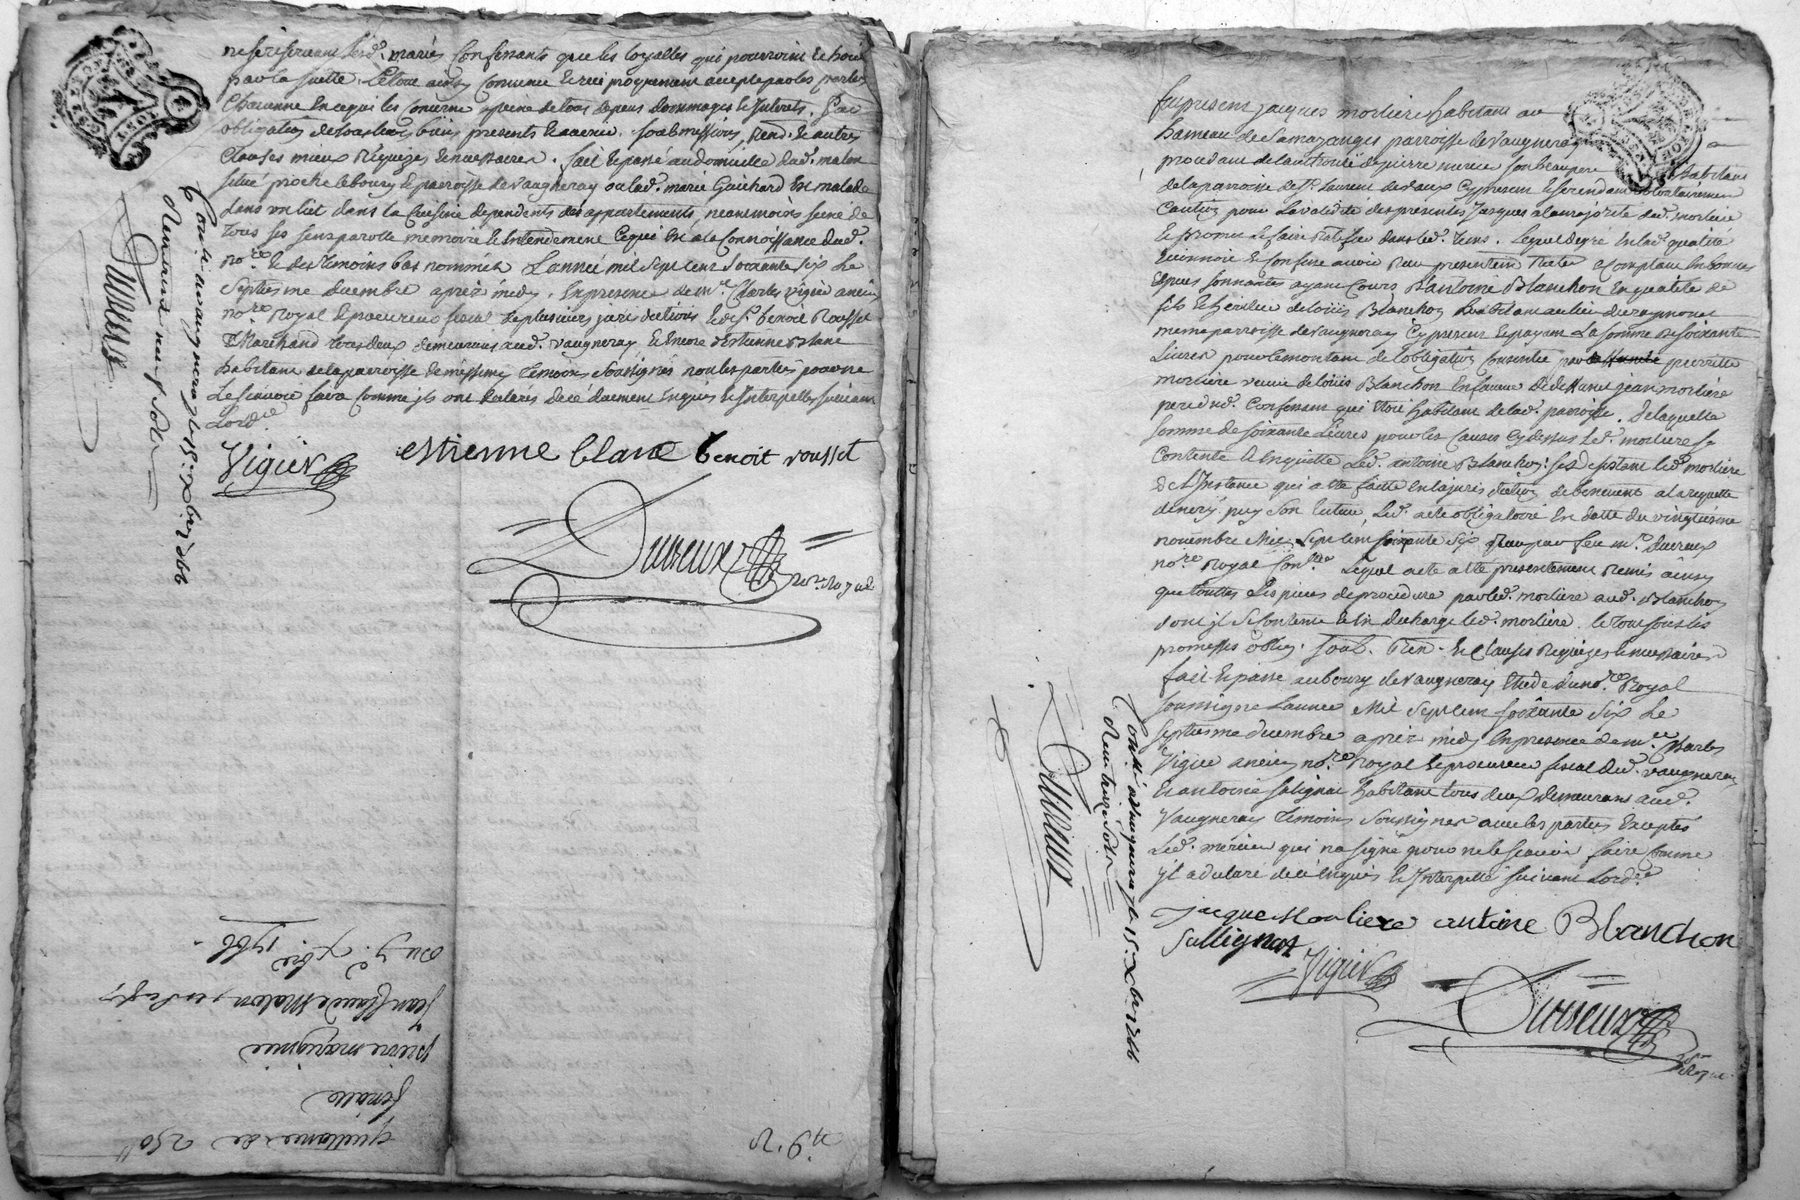 ne se reservant lesd. mariés Confessants que les loyalles qui pourroint Echoir
par la suitte. Letout ainsy Convenue Et reciproquement accepté par les parties
Chacunne En ce qui les Concerne a peine de tous depens dommages Et Interets. Par
obligation de tous leurs biens presents Et avenir. soubmissions, Rend. Et autres
Clauses mieux Requizes Et necessaires. fait Et passé au domicille dud. malon
situé proche le bourg Et parroisse de Vaugneray ou lad. marie Guichard Est malade
dans un liet dans la Cuisine dependents des appartements, neansmoins seine de
tous ses sens parolle memoire Et Entendement Ce qui Est a la Connoissance dud.
no.re Et des Temoins bas nommés Lannée mil sept cent soixante six Le
septiesme decembre aprèz midy. En presence de m.e Charles Vigier ancien
no.re Royal Et procureur fiscal de plusieurs jurisdictions Et de s.r benoit Rousset
Marchand tous deux demeurants aud. Vaugneray Et Encore d'Estienne Blanc
habitant de la parroisse de messimy Temoins Soussignés non les parties pour ne
Le scavoir faire Comme jls ont declarés de ce duement Enquis Et Interpellés suivant
Lord.ce
Vigier estienne blanc benoit rousset
Dureux
no.re Royal
Con.lé a vaugneray le 15: Xbre 1766
Recu trente neuf sols
Dureux
quittance de 250 ll
finalle
pierre marignier
Jean Claude Malon
Du 7.e Xbre 1766
fut present jacques morliere habitant au
hameau de Samazanges parroisse de Vaugneray
procedant de lautorité de pierre mercier son beaupere habitant
de la parroisse de St. Laurent de Vaux Cy present Et se rendant volontairement
Caution pour La validité des presentes Jusques a la majorité dud. morliere
Et promet Le faire Ratiffier dans led. Tems. Lequel de gré En lad. qualité
reconnoit Et Confesse avoir Receu presentement Et Comptant En bonnes
Especes sonnantes ayant Cours d'antoine Blanchon En qualité de
fils Et heritier de loüis Blanchon habitant au lieu
meme parroisse de vaugneray Cy present Et payant La somme de soixante
Livres pour le montant de l'obligation Consentie par pierrette
morliere veuve de loüis Blanchon En faveur de deffunt jean morliere
pere dud. Confessant qui Etoit habitant de lad. parroisse. De laquelle
somme de soixante Livres pour les Causes Cy dessus Led. morliere se
Contente Et En quitte Led. antoine Blanchon: se desistant led. morliere
de L'Instance qui a eté faitte En la jurisdiction a la requette
son tuteur, Led. acte obligatoire En datte du vingtiesme
novembre Mil sept cent soixante six Receu par feu m.e dureux
no.re Royal Lequel acte a eté presentement Remis ainsy
que touttes Les pieces de procedure par led. morliere aud. Blanchon
dont jl se Contente Et En decharge led. morliere. le tout sous les
promesses oblig. soub. Ren. Et Clauses Requizes Et necessaires
fait Et passé au bourg de Vaugneray Etude du no.re Royal
soussigné Lannée Mil sept cent soixante six Le
septiesme decembre aprèz midy En presence de m.e Charles
Vigier ancien no.re Royal Et procureur fiscal dud. Vaugneray
Et antoine salignat habitant tous deux demeurans aud.
Vaugneray Temoins Soussignés avec les parties Exceptés
Led. mercier qui na signé pour ne le scavoir faire Comme
jl a declaré de ce Enquis Et Interpellé suivant Lord.ce
jacque Morliere antoine Blanchon
Sallignat
Vigier
Dureux
no.re Royal
Con.lé a vaugneray le 15: Xbre 1766
Recu treize sols
Dureux